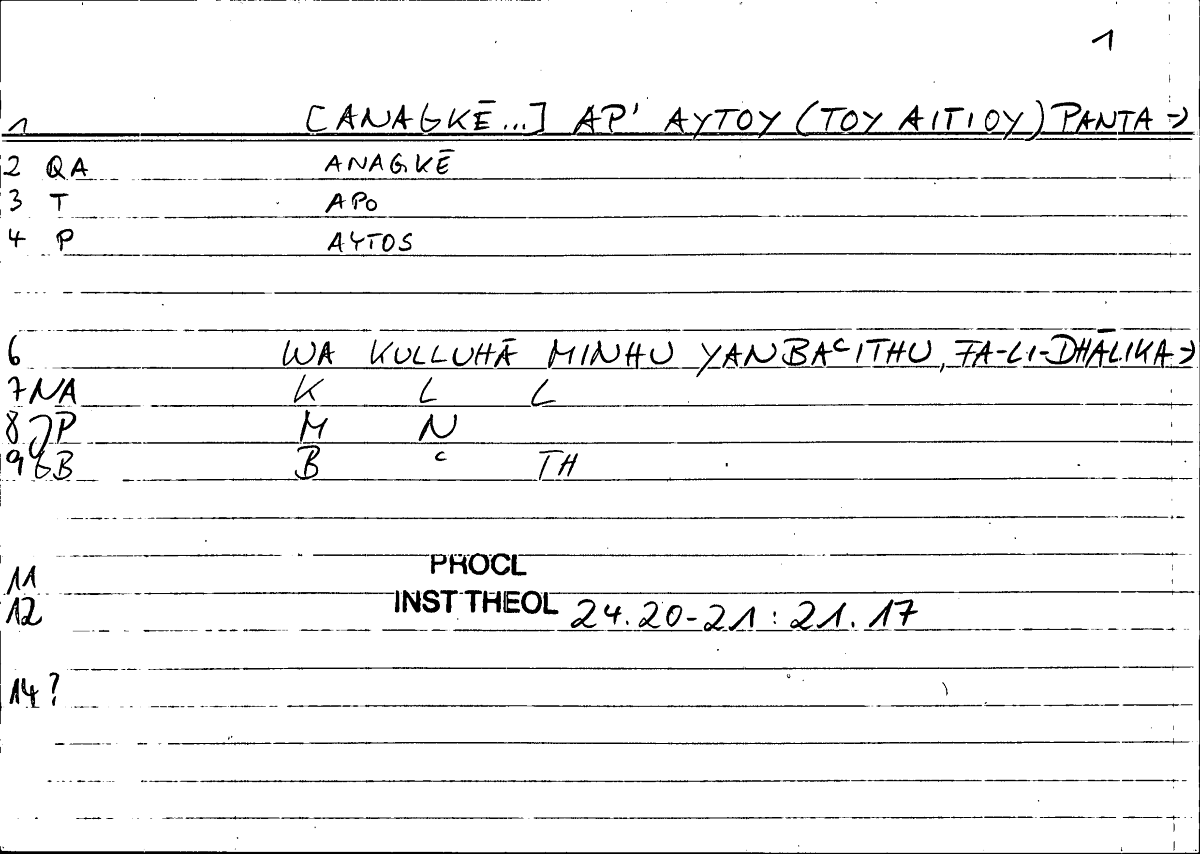 1
1 [ANAGKĒ...] AP' AYTOY (TOY AITIOY) PANTA →
2 QA ANAGKĒ
3 T APO
4 P AYTOS
6 WA KULLUHĀ MINHU YANBAᶜITHU, FA-LI-DHĀLIKA →
7 NA K L L
8 JP M N
9 GB B ᶜ TH
11 PROCL
12 INST THEOL 24.20-21 : 21.17
14 ?